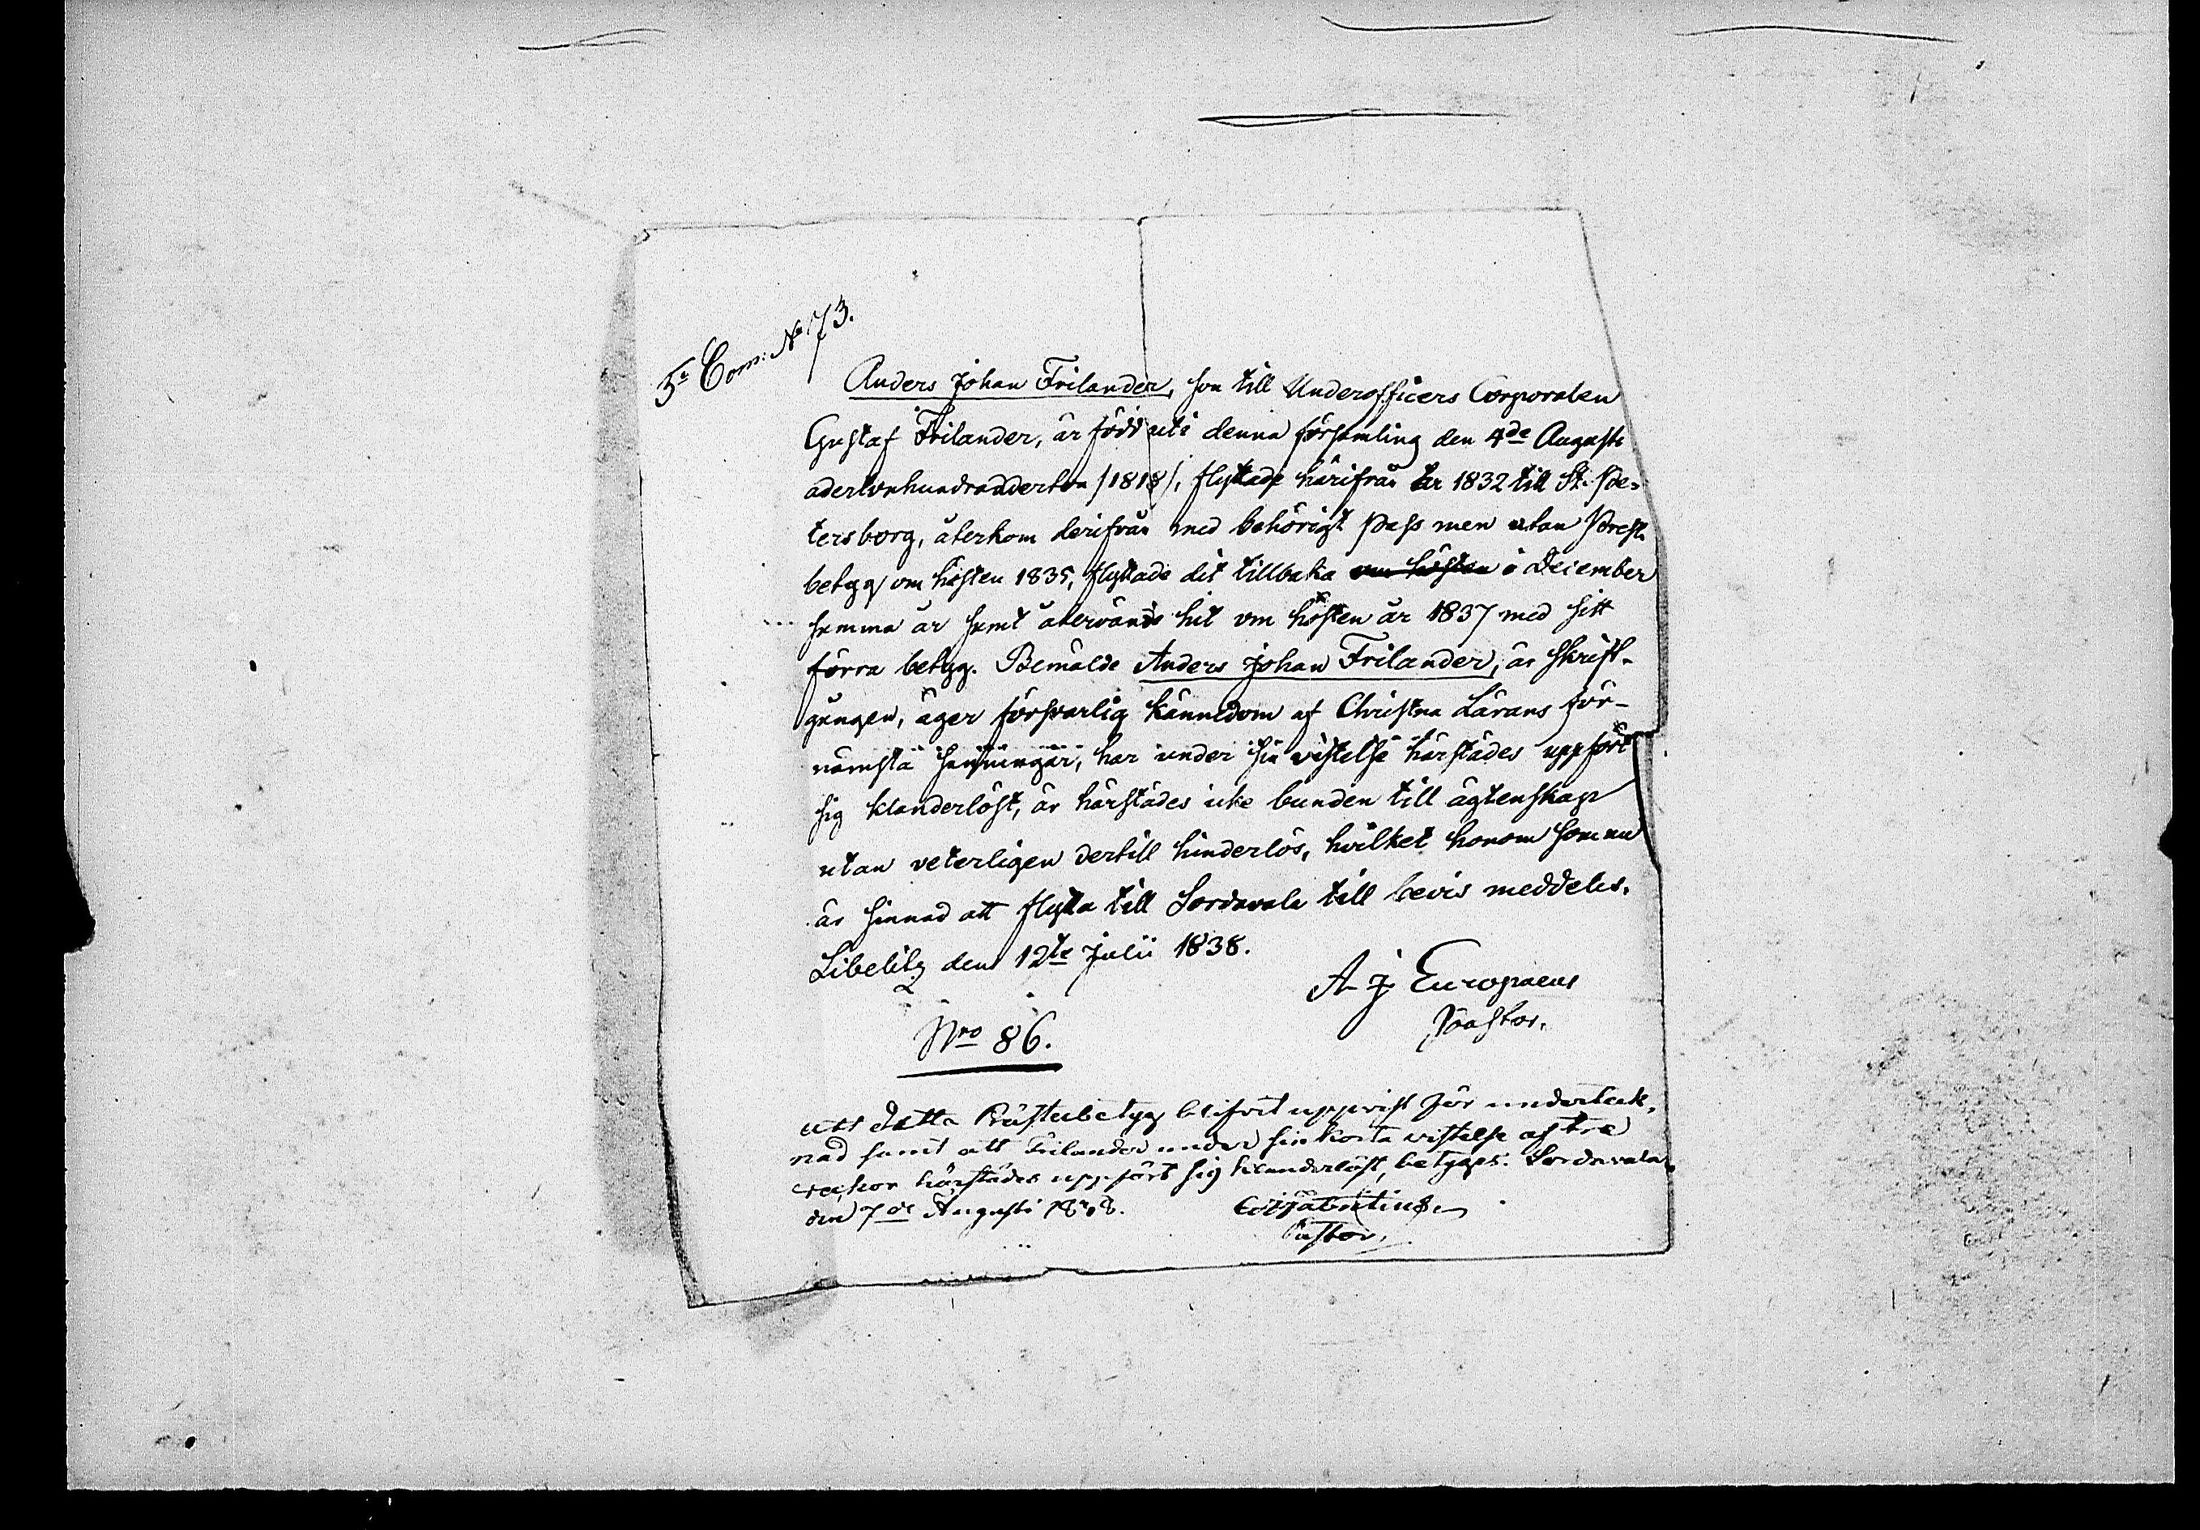 5e Com: No 173.
Anders Johan Frilander, son till Underofficers Corporalen
Gustaf Frilander, är född uti denna församling den 4de Augusti
adertonhundraaderton /1818/, flyttade härifrån år 1832 till St. Pe-
tersborg, återkom derifrån med behörigt pass men utan Prest-
betyg om hösten 1835, flyttade dit tillbaka om hösten i December
samma år samt återvände hit om hösten år 1837 med sitt
förra betyg. Bemälde Anders Johan Frilander, är skrift-
gången, äger försvarlig kännedom af Christna Lärans för-
nämsta sanningar, har under sin vistelse härstädes uppfört
sig klanderlöst, är härstädes icke bunden till ägtenskap
utan veterligen dertill hinderlös, hvilket honom som nu
är sinnad att flytta till Sordavala till bevis meddeles.
Libelitz den 12te Julii 1838.
A J Europaeus
Pastor.
Nro 86.
Att detta Prästebetyg blifvit uppvist för underteck-
nad samt att Frilander under sin korta vistelse af tre
veckor härstädes uppfört sig klanderlöst, betygas. Sordavala
den 7de Augusti 1838.
Pastor.